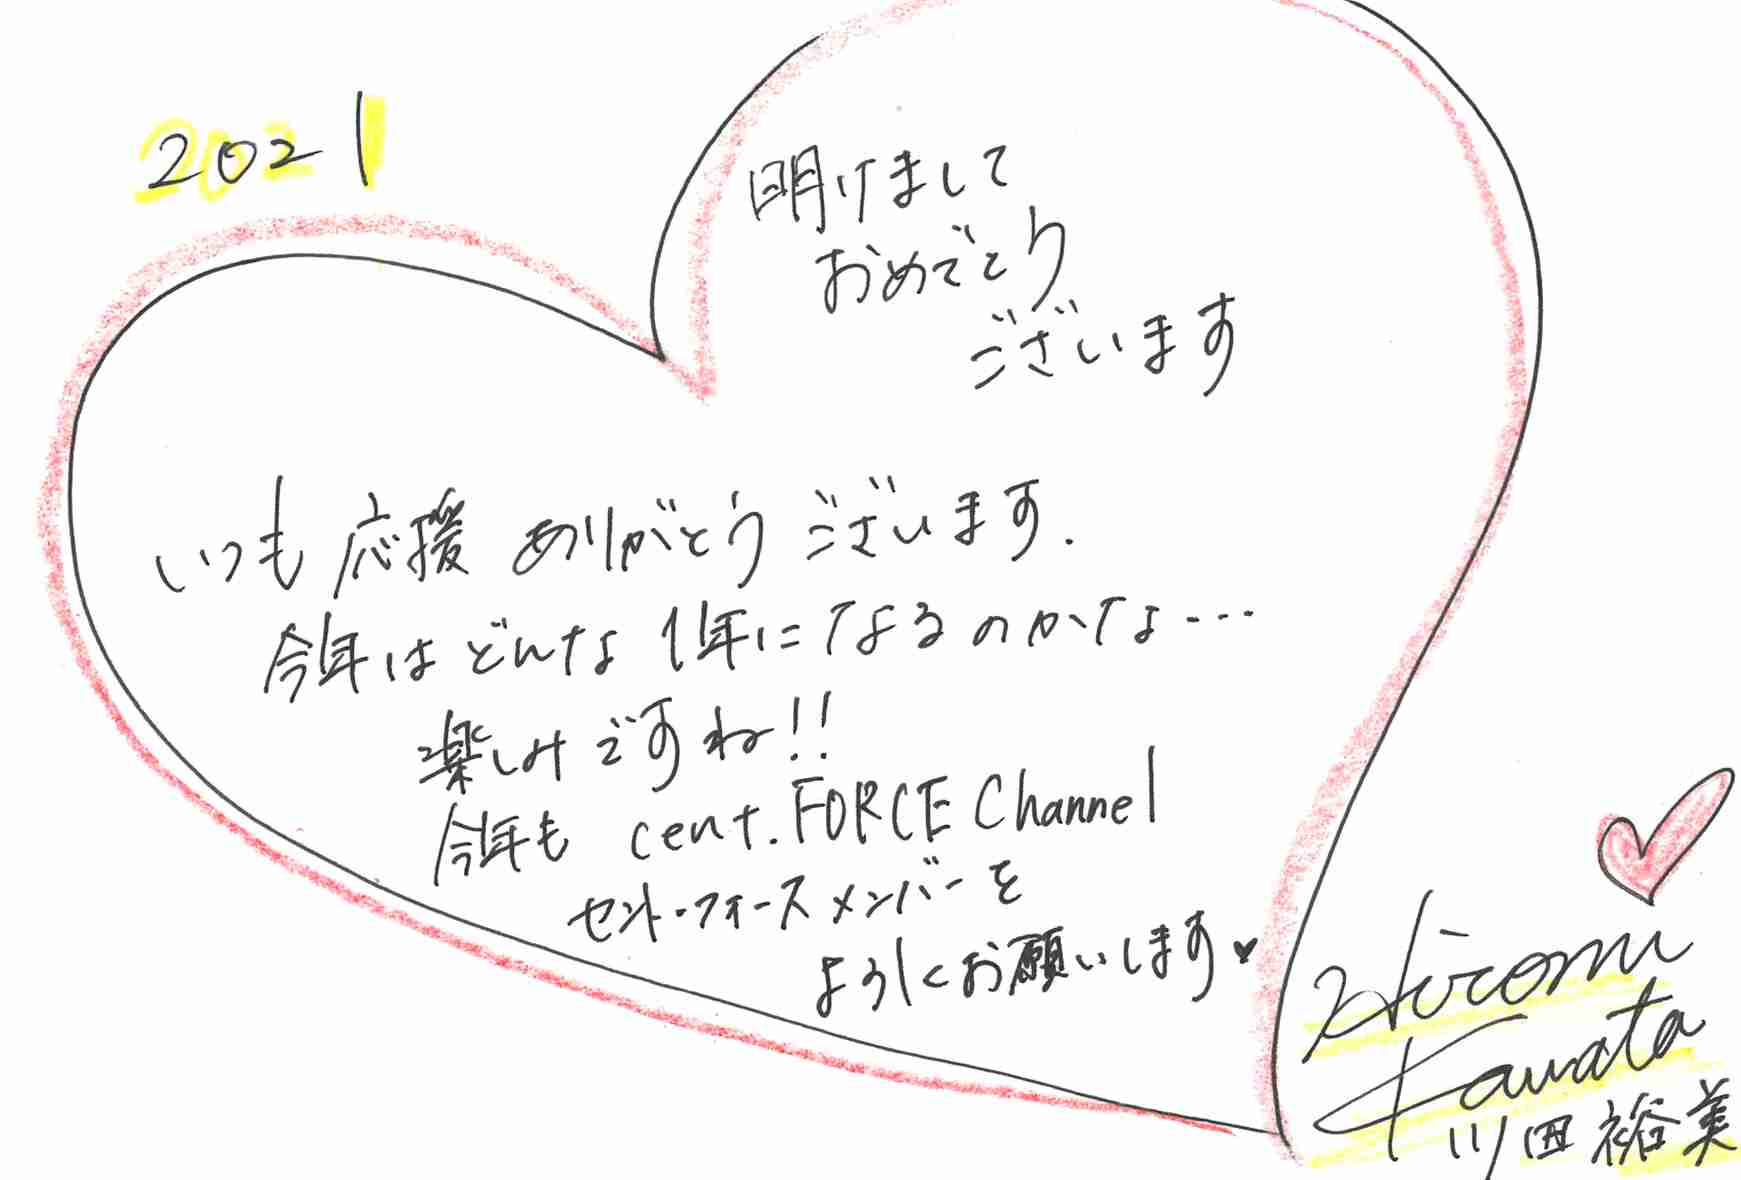 2021
明けまして
おめでとう
ございます
いつも応援ありがとうございます.
今年はどんな1年になるのかな…
楽しみですね!!
今年も cent.FORCE Channel
セント・フォースメンバーを
よろしくお願いします♥
Hiromi
Kawata
川田裕美